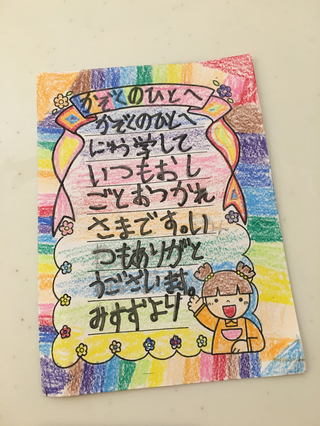 かぞくのひとへ
かぞくのひとへ
にゅう学して
いつもおし
ごとおつかれ
さまです。い
つもありがと
うございます。
みすずより